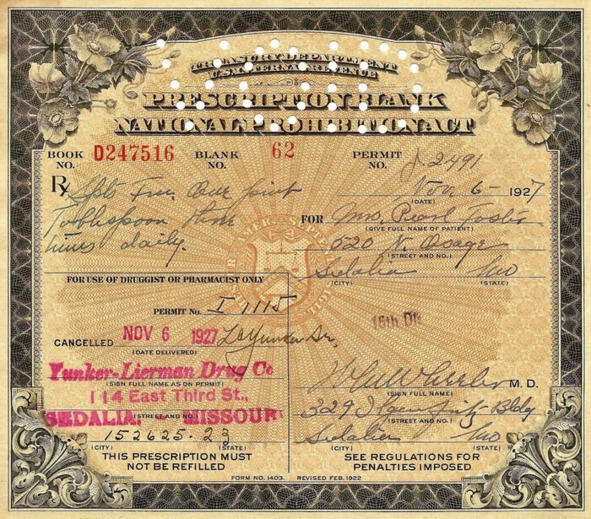 TREASURY DEPARTMENT
U.S. INTERNAL REVENUE
PRESCRIPTION BLANK
NATIONAL PROHIBITION ACT
BOOK NO. D247516 BLANK NO. 62 PERMIT NO. J-2491
Rx Spts Fru. One pint Nov 6- 1927
(DATE)
Tablespoon three FOR Mrs. Pearl Foster
(GIVE FULL NAME OF PATIENT)
times daily. 620 N. Osage
(STREET AND NO.)
Sedalia Mo
(CITY) (STATE)
FOR USE OF DRUGGIST OR PHARMACIST ONLY
PERMIT No. I-1115
16th Dis
CANCELLED NOV 6 1927
(DATE DELIVERED)
Yunker-Lierman Drug Co M.D.
(SIGN FULL NAME AS ON PERMIT) (SIGN FULL NAME)
114 East Third St., Bldg
(STREET AND NO.) (STREET AND NO.)
SEDALIA, - MISSOURI Sedalia Mo
152625-23
(CITY) (STATE) (CITY) (STATE)
THIS PRESCRIPTION MUST SEE REGULATIONS FOR
NOT BE REFILLED PENALTIES IMPOSED
FORM NO. 1403. REVISED FEB. 1922